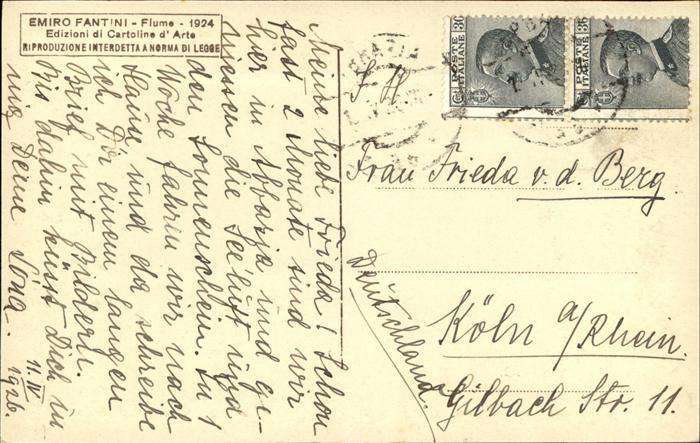 EMIRO FANTINI - Fiume - 1924
Edizioni di Cartoline d'Arte
RIPRODUZIONE INTERDETTA A NORMA DI LEGGE
Meine liebe Frieda! Schon
fast 2 Monate sind wir
hier in Abbazia und ge-
niessen die Seeluft und
den Sonnenschein. In 1
Woche fahren wir nach
Hause und da schreibe
ich Dir einen langen
Brief mit Bildern.
Bis dahin küsst Dich in-
nig Deine
11. IV
1926.
POSTE ITALIANE
POSTE ITALIANE
Frau Frieda v. d. Berg
Köln a/Rhein.
Gilbach Str. 11.
Deutschland.